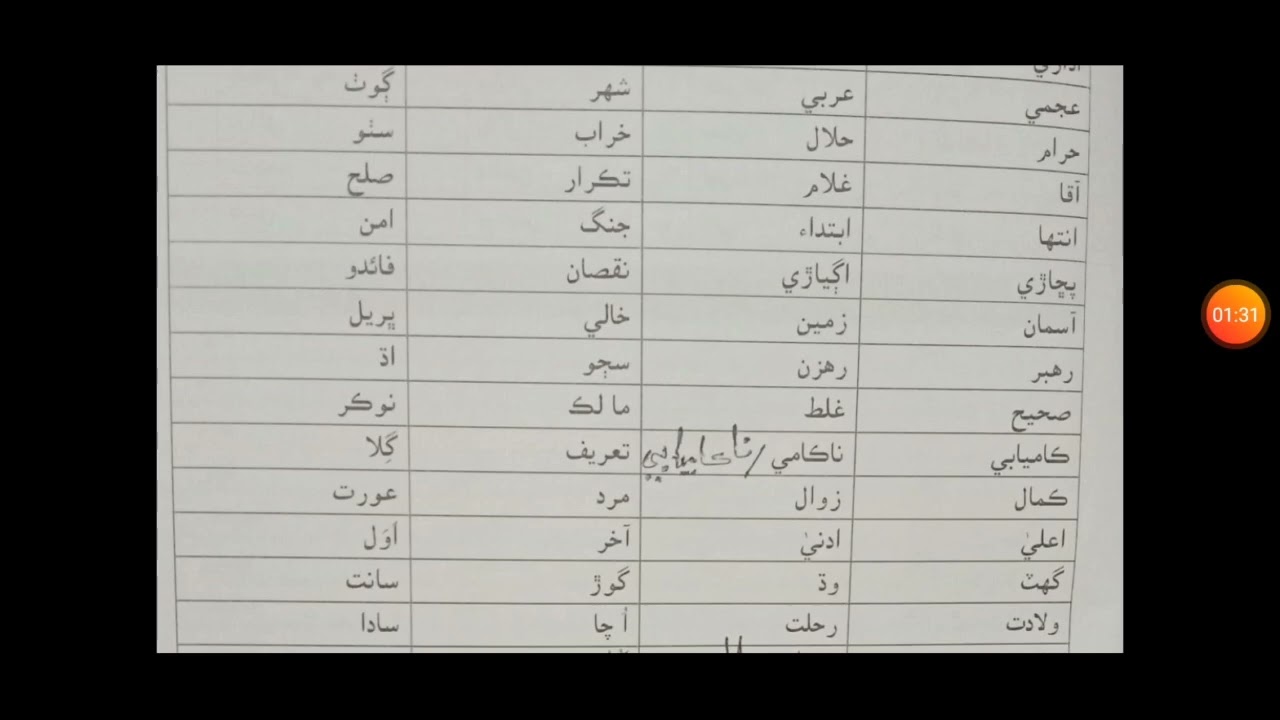 عجمي عربي شهر ڳوٺ
حرام حلال خراب سٺو
آقا غلام تڪرار صلح
انتها ابتداء جنگ امن
پڇاڙي اڳياڙي نقصان فائدو
آسمان زمين خالي ڀريل
رهبر رهزن سڄو اڌ
صحيح غلط مالڪ نوڪر
ڪاميابي ناڪامي/ناڪاميابي تعريف گِلا
ڪمال زوال مرد عورت
اعليٰ ادنيٰ آخر اَوَل
گهٽ وڌ گوڙ سانت
ولادت رحلت اُچا سادا
01:31